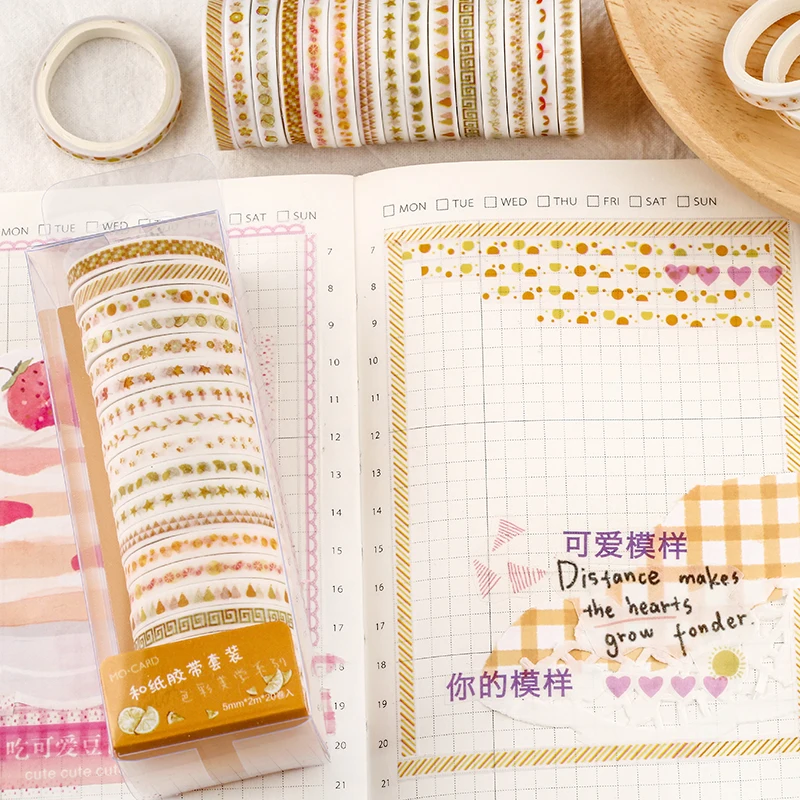 MON TUE WED SAT SUN
MON TUE WED THU FRI SAT SUN
7
8
9
10
11
12
13
14
15
16
17
18
19
20
21
7
8
9
10
11
12
13
14
15
16
17
18
19
20
21
MO·CARD
和纸胶带套装
5mm*2m*20卷入
吃可爱豆
cute cute cut
可爱模样
Distance makes
the hearts
grow fonder.
你的模样